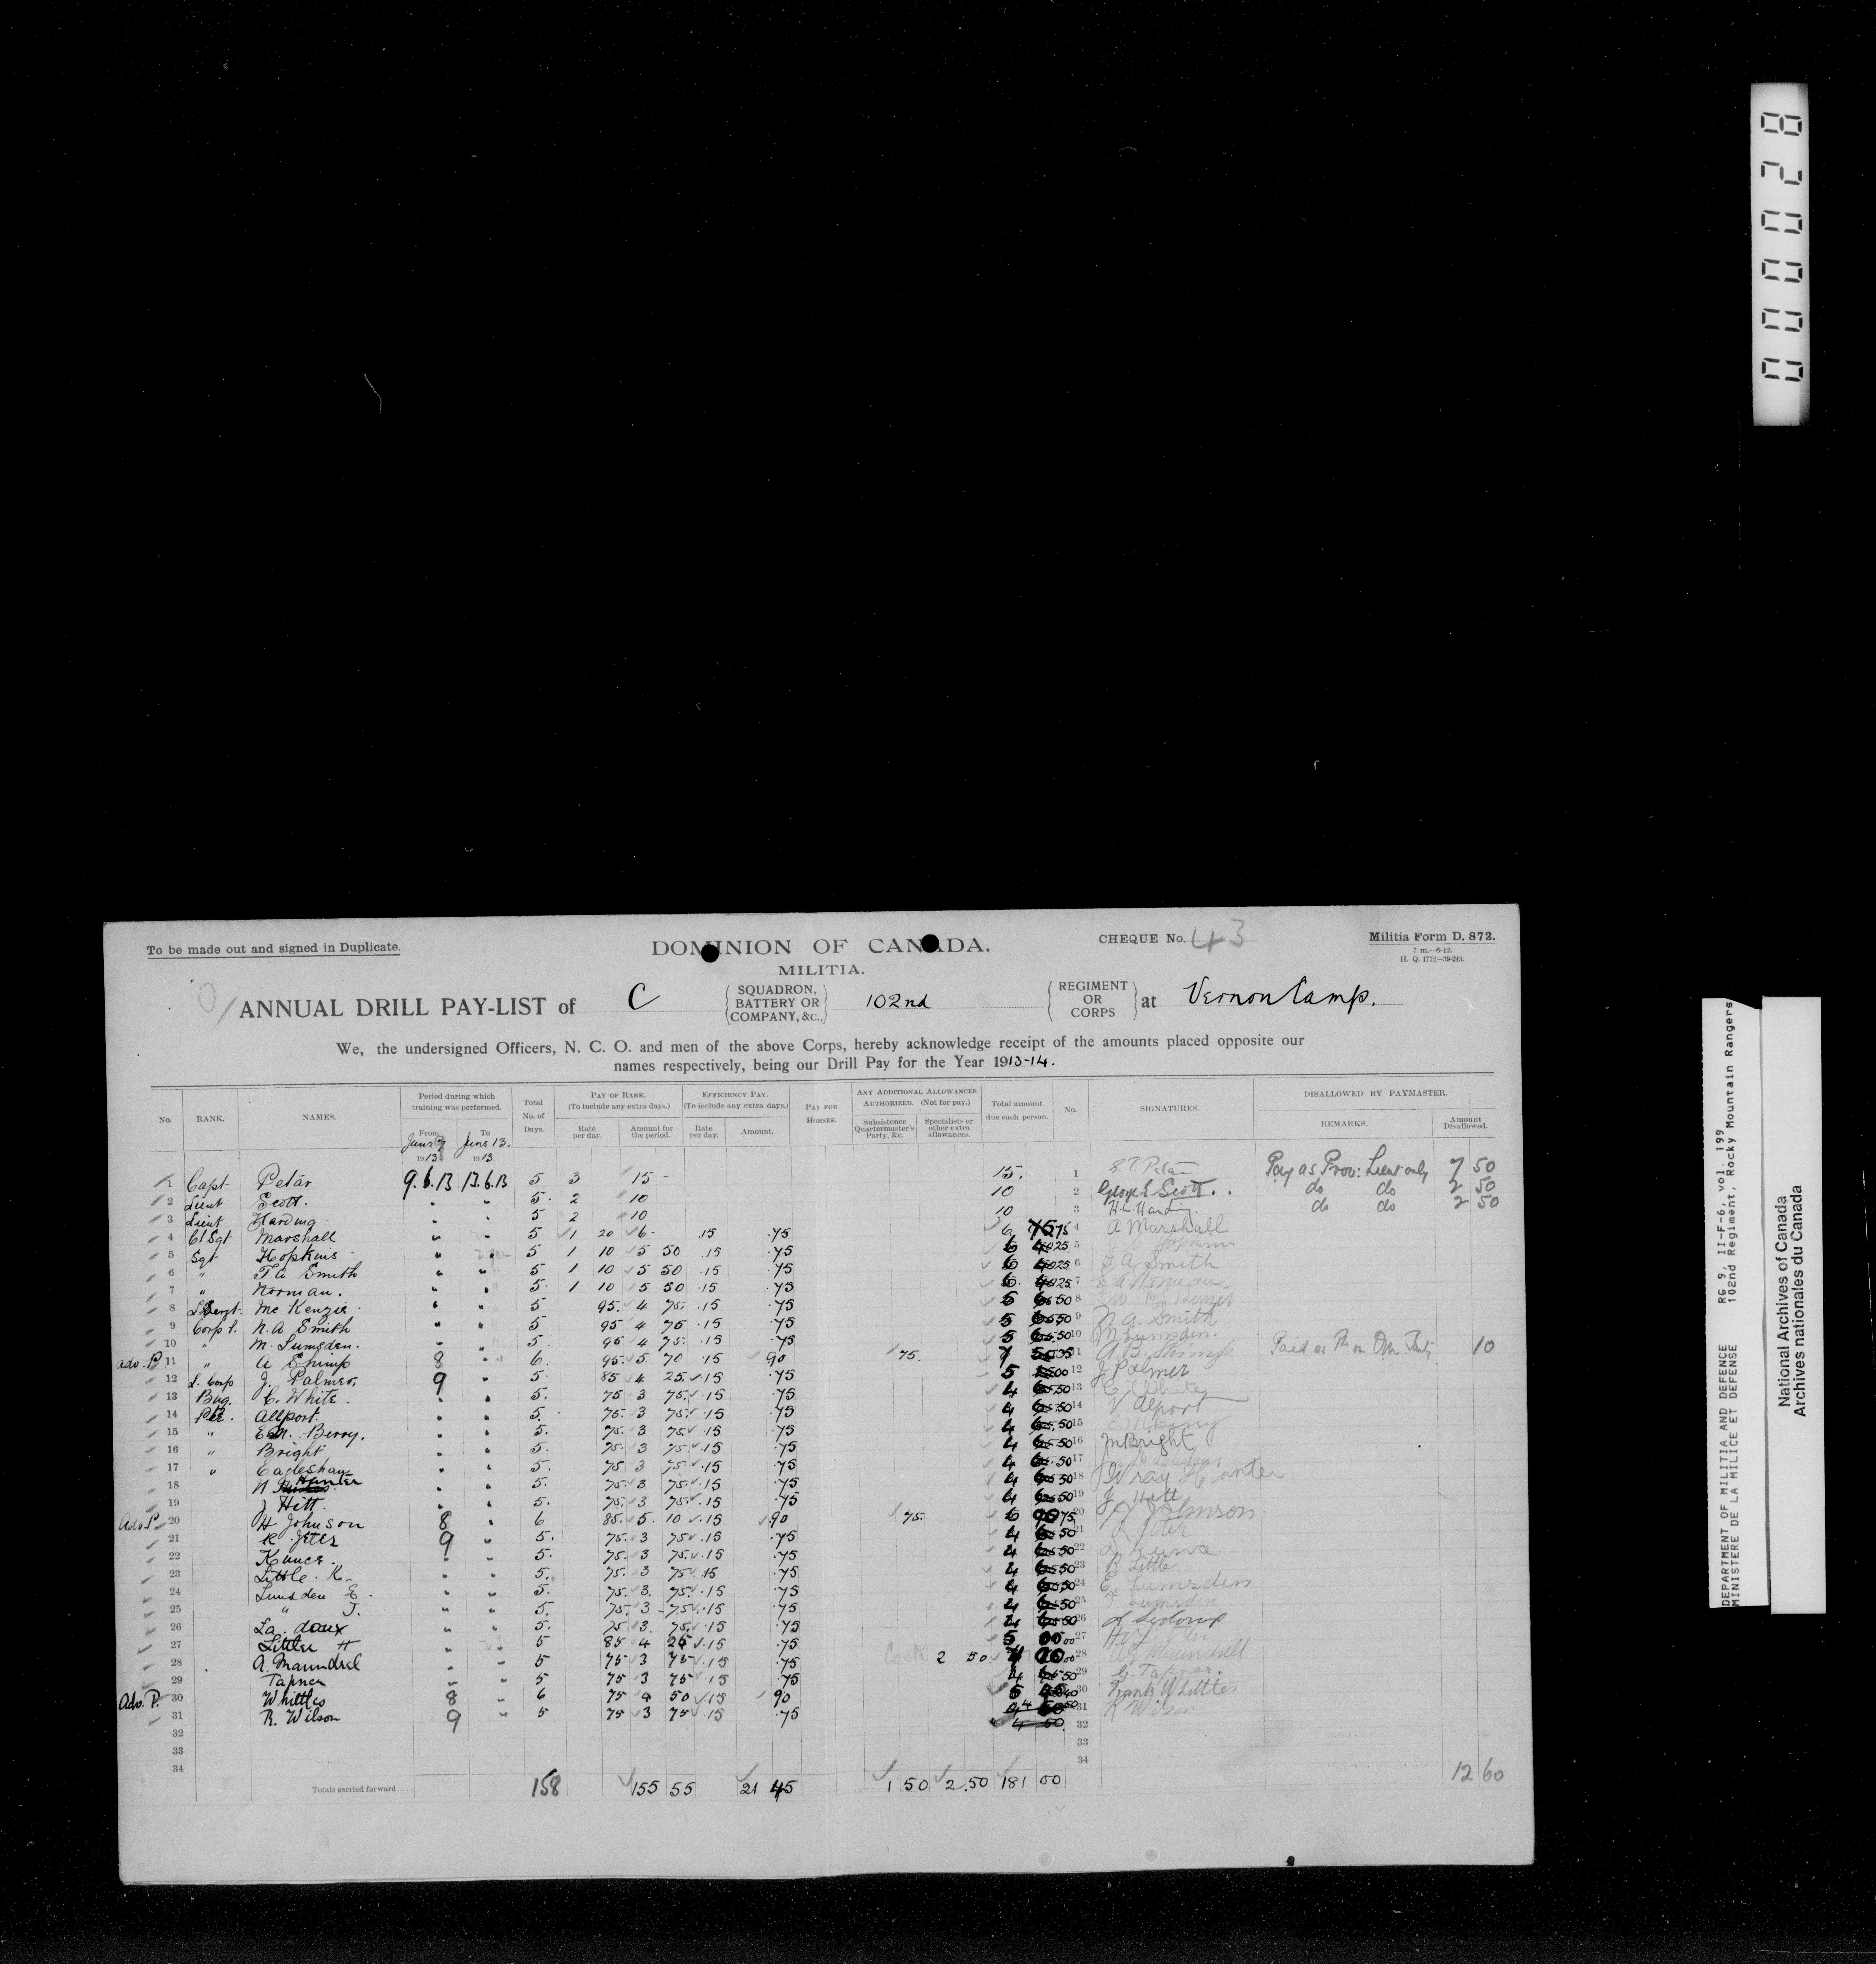 0000028
To be made out and signed in Duplicate.
DOMINION OF CANADA.
MILITIA.
CHEQUE No. 43
Militia Form D. 872.
7 m.—6-12.
H. Q. 1772—39-243.
ANNUAL DRILL PAY-LIST of C (SQUADRON, BATTERY OR COMPANY, &c.,) 102nd (REGIMENT OR CORPS) at Vernon Camp.
We, the undersigned Officers, N. C. O. and men of the above Corps, hereby acknowledge receipt of the amounts placed opposite our
names respectively, being our Drill Pay for the Year 1913-14.
No. RANK. NAMES. Period during which training was performed. From June 9 1913 To June 13. 1913 Total No. of Days. PAY OF RANK. (To include any extra days.) Rate per day. Amount for the period. EFFICIENCY PAY. (To include any extra days.) Rate per day. Amount. PAY FOR HORSES. ANY ADDITIONAL ALLOWANCES AUTHORIZED. (Not for pay.) Subsistence Quartermaster's Party, &c. Specialists or other extra allowances. Total amount due each person. No. SIGNATURES. DISALLOWED BY PAYMASTER. REMARKS. Amount Disallowed.
1 Capt Petar 9.6.13 13.6.13 5 3 15 - 15. 1 Pay as Prov: Lieut only 7 50
2 Lieut Scott. " " 5. 2 10 10 2 George L Scott. do do 2 50
3 Lieut Harding " " 5 2 10 10 3 H Harding. do do 2 50
4 Cl Sgt Marshall " " 5 1 20 6 - .15 .75 6 75 4 A Marshall
5 Sgt Hopkins " " 5 1 10 5 50 .15 .75 6 25 5
6 " T A Smith " " 5 1 10 5 50 .15 .75 6 25 6 T A Smith
7 " Norman. " " 5. 1 10 5 50 .15 .75 6. 25 7
8 L Sergt. Mc Kenzie " " 5 95. 4 75. .15 .75 5 50 8
9 Corpl. N. A Smith " " 5 95 4 75 .15 .75 5 50 9 N. A. Smith
10 " M. Lumsden. " " 5. 95 4 75. .15 .75 5 50 10 M Lumsden.
Adv. P. 11 " A Shimp 8 " 6. 95. 5. 70 .15 90 .75. 7 35 11 A. B. Shimp 10
12 L. Corp J. Palmer 9 " 5. 85 4 25 .15 .75 5 00 12 J Palmer
13 Bug. C. White. " " 5. 75 3 75 .15 .75 4 50 13 C White
14 Pte. Allport. " " 5. 75. 3 75 .15 .75 4 50 14 V Alport
15 " E M. Berry. " " 5. 75. 3 75 .15 .75 4 50 15
16 " Bright " " 5. 75. 3 75 .15 .75 4 50 16 Bright
17 " Eagleshay " " 5. 75 3 75 .15 .75 4 50 17
18 N Hunter " " 5. 75. 3 75 .15 .75 4 50 18
19 J Hitt. " " 5. 75. 3 75 .15 .75 4 50 19 J Hitt
Adv. P. 20 H Johnson 8 " 6 85. 5. 10 .15 .90 .75. 6 75 20 Johnson
21 9 " 5. 75. 3 75 .15 .75 4 50 21
22 " " 5. 75. 3 75 .15 .75 4 50 22
23 Little. R. " " 5. 75. 3 75 .15 .75 4 50 23 R Little
24 Lumsden E. " " 5. 75. 3. 75 .15 .75 4 50 24 E Lumsden
25 " J. " " 5. 75. 3 - 75 .15 .75 4 50 25 Lumsden
26 La doux " " 5. 75 3. 75 .15 .75 4 50 26
27 Litter H " " 5 85 4 25 .15 .75 5 00 27
28 A. Maundrel " " 5 75 3 75 .15 .75 Cook 2 50 7 00 28 Maundrell
29 Tapner " " 5 75 3 75 .15 .75 4 50 29 G. Tapner.
Adv. P. 30 Whittles 8 " 6 75 4 50 .15 90 5 40 30 Frank Whittles
31 R. Wilson 9 " 5 75 3 75 .15 .75 4 50 31 R Wilson
32 32
33 33
34 34
Totals carried forward..... 158 155 55 21 45 1 50 2.50 181 00 12 60
DEPARTMENT OF MILITIA AND DEFENSE RG 9, II-F-6, vol. 199
MINISTERE DE LA MILICE ET DEFENSE 102nd Regiment, Rocky Mountain Rangers
National Archives of Canada
Archives nationales du Canada